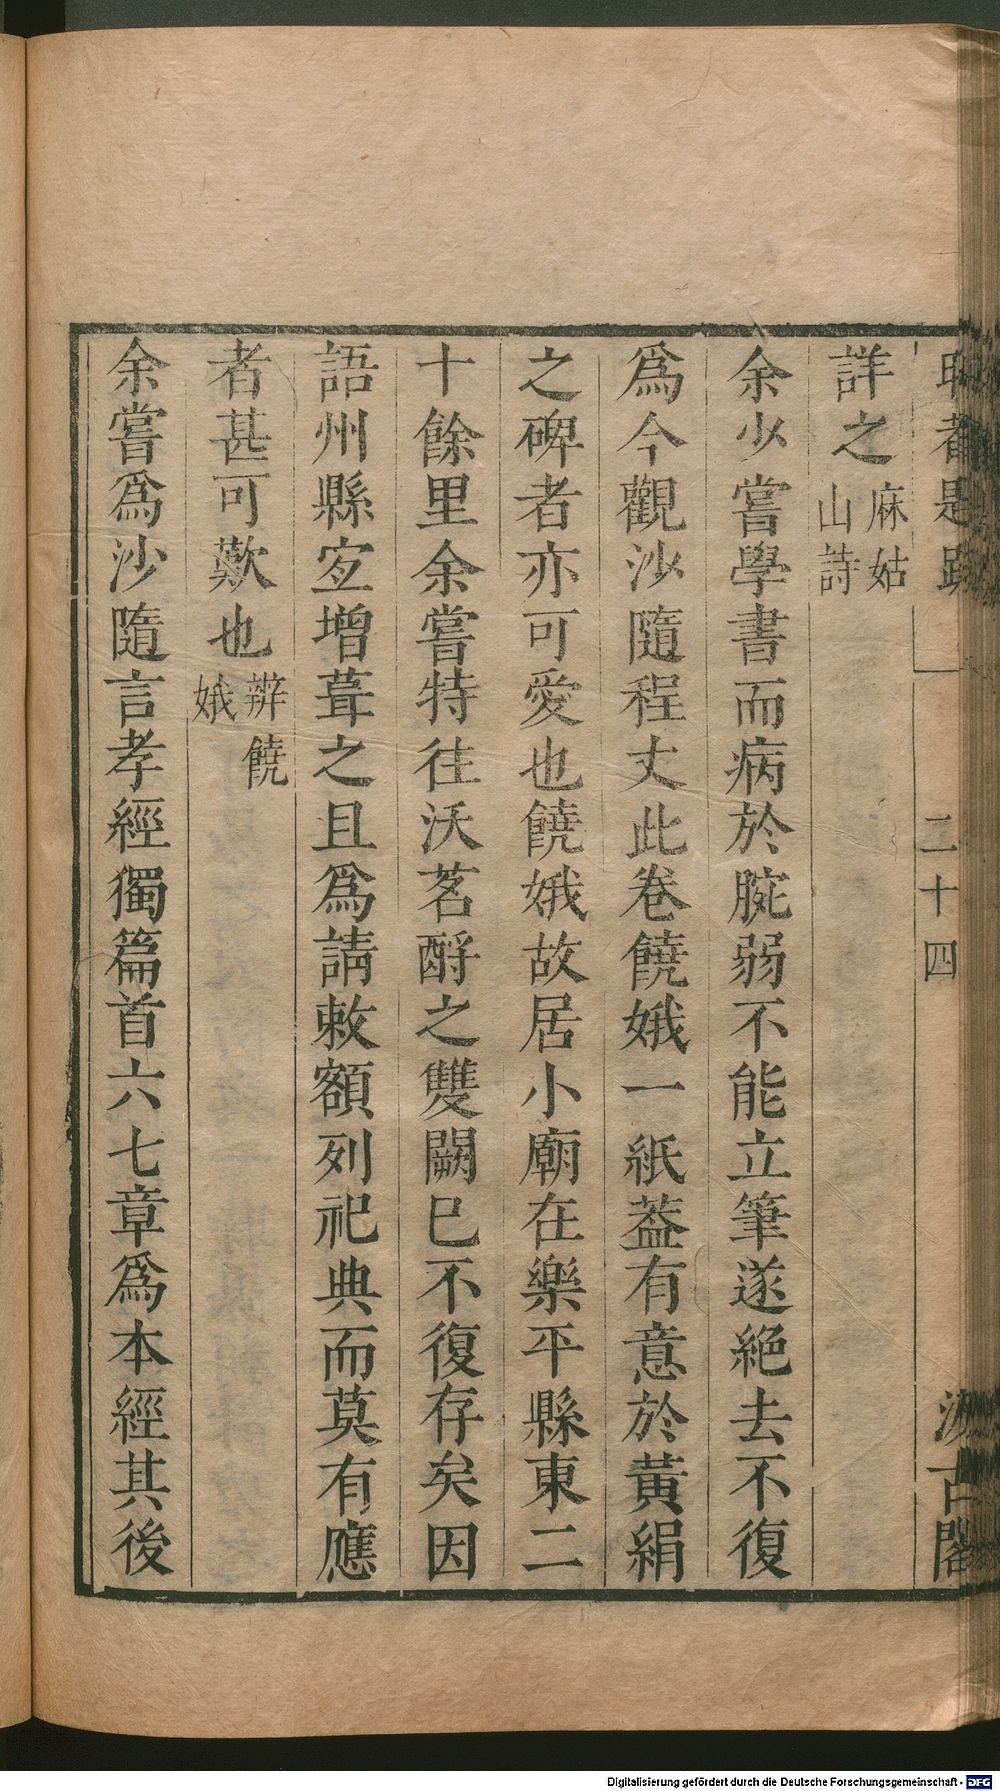 詳之麻姑山詩
余少嘗學書而病於腕弱不能立筆遂絕去不復
爲今觀沙隨程丈此卷饒娥一紙葢有意於黃絹
之碑者亦可愛也饒娥故居小廟在樂平縣東二
十餘里余嘗特往沃茗酹之雙闕巳不復存矣因
語州縣宐增葺之且爲請敕額列祀典而莫有應
者甚可歎也辨饒娥
余嘗爲沙隨言孝經獨篇首六七章爲本經其後
二十四
汲古閣
Digitalisierung gefördert durch die Deutsche Forschungsgemeinschaft - DFG